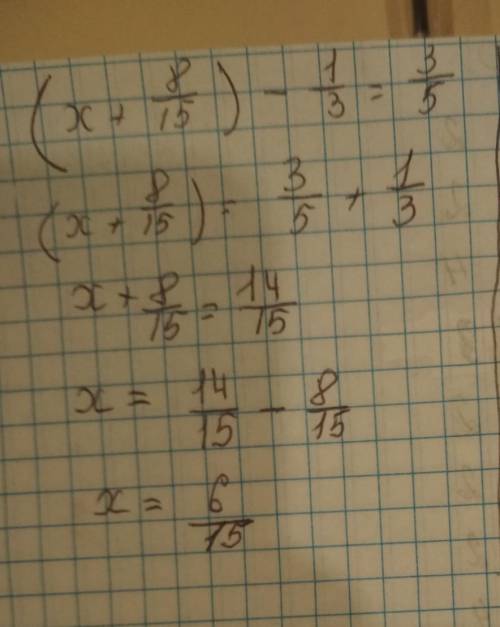 (x + 8/15) - 1/3 = 3/5
(x + 8/15) = 3/5 + 1/3
x + 8/15 = 14/15
x = 14/15 - 8/15
x = 6/15